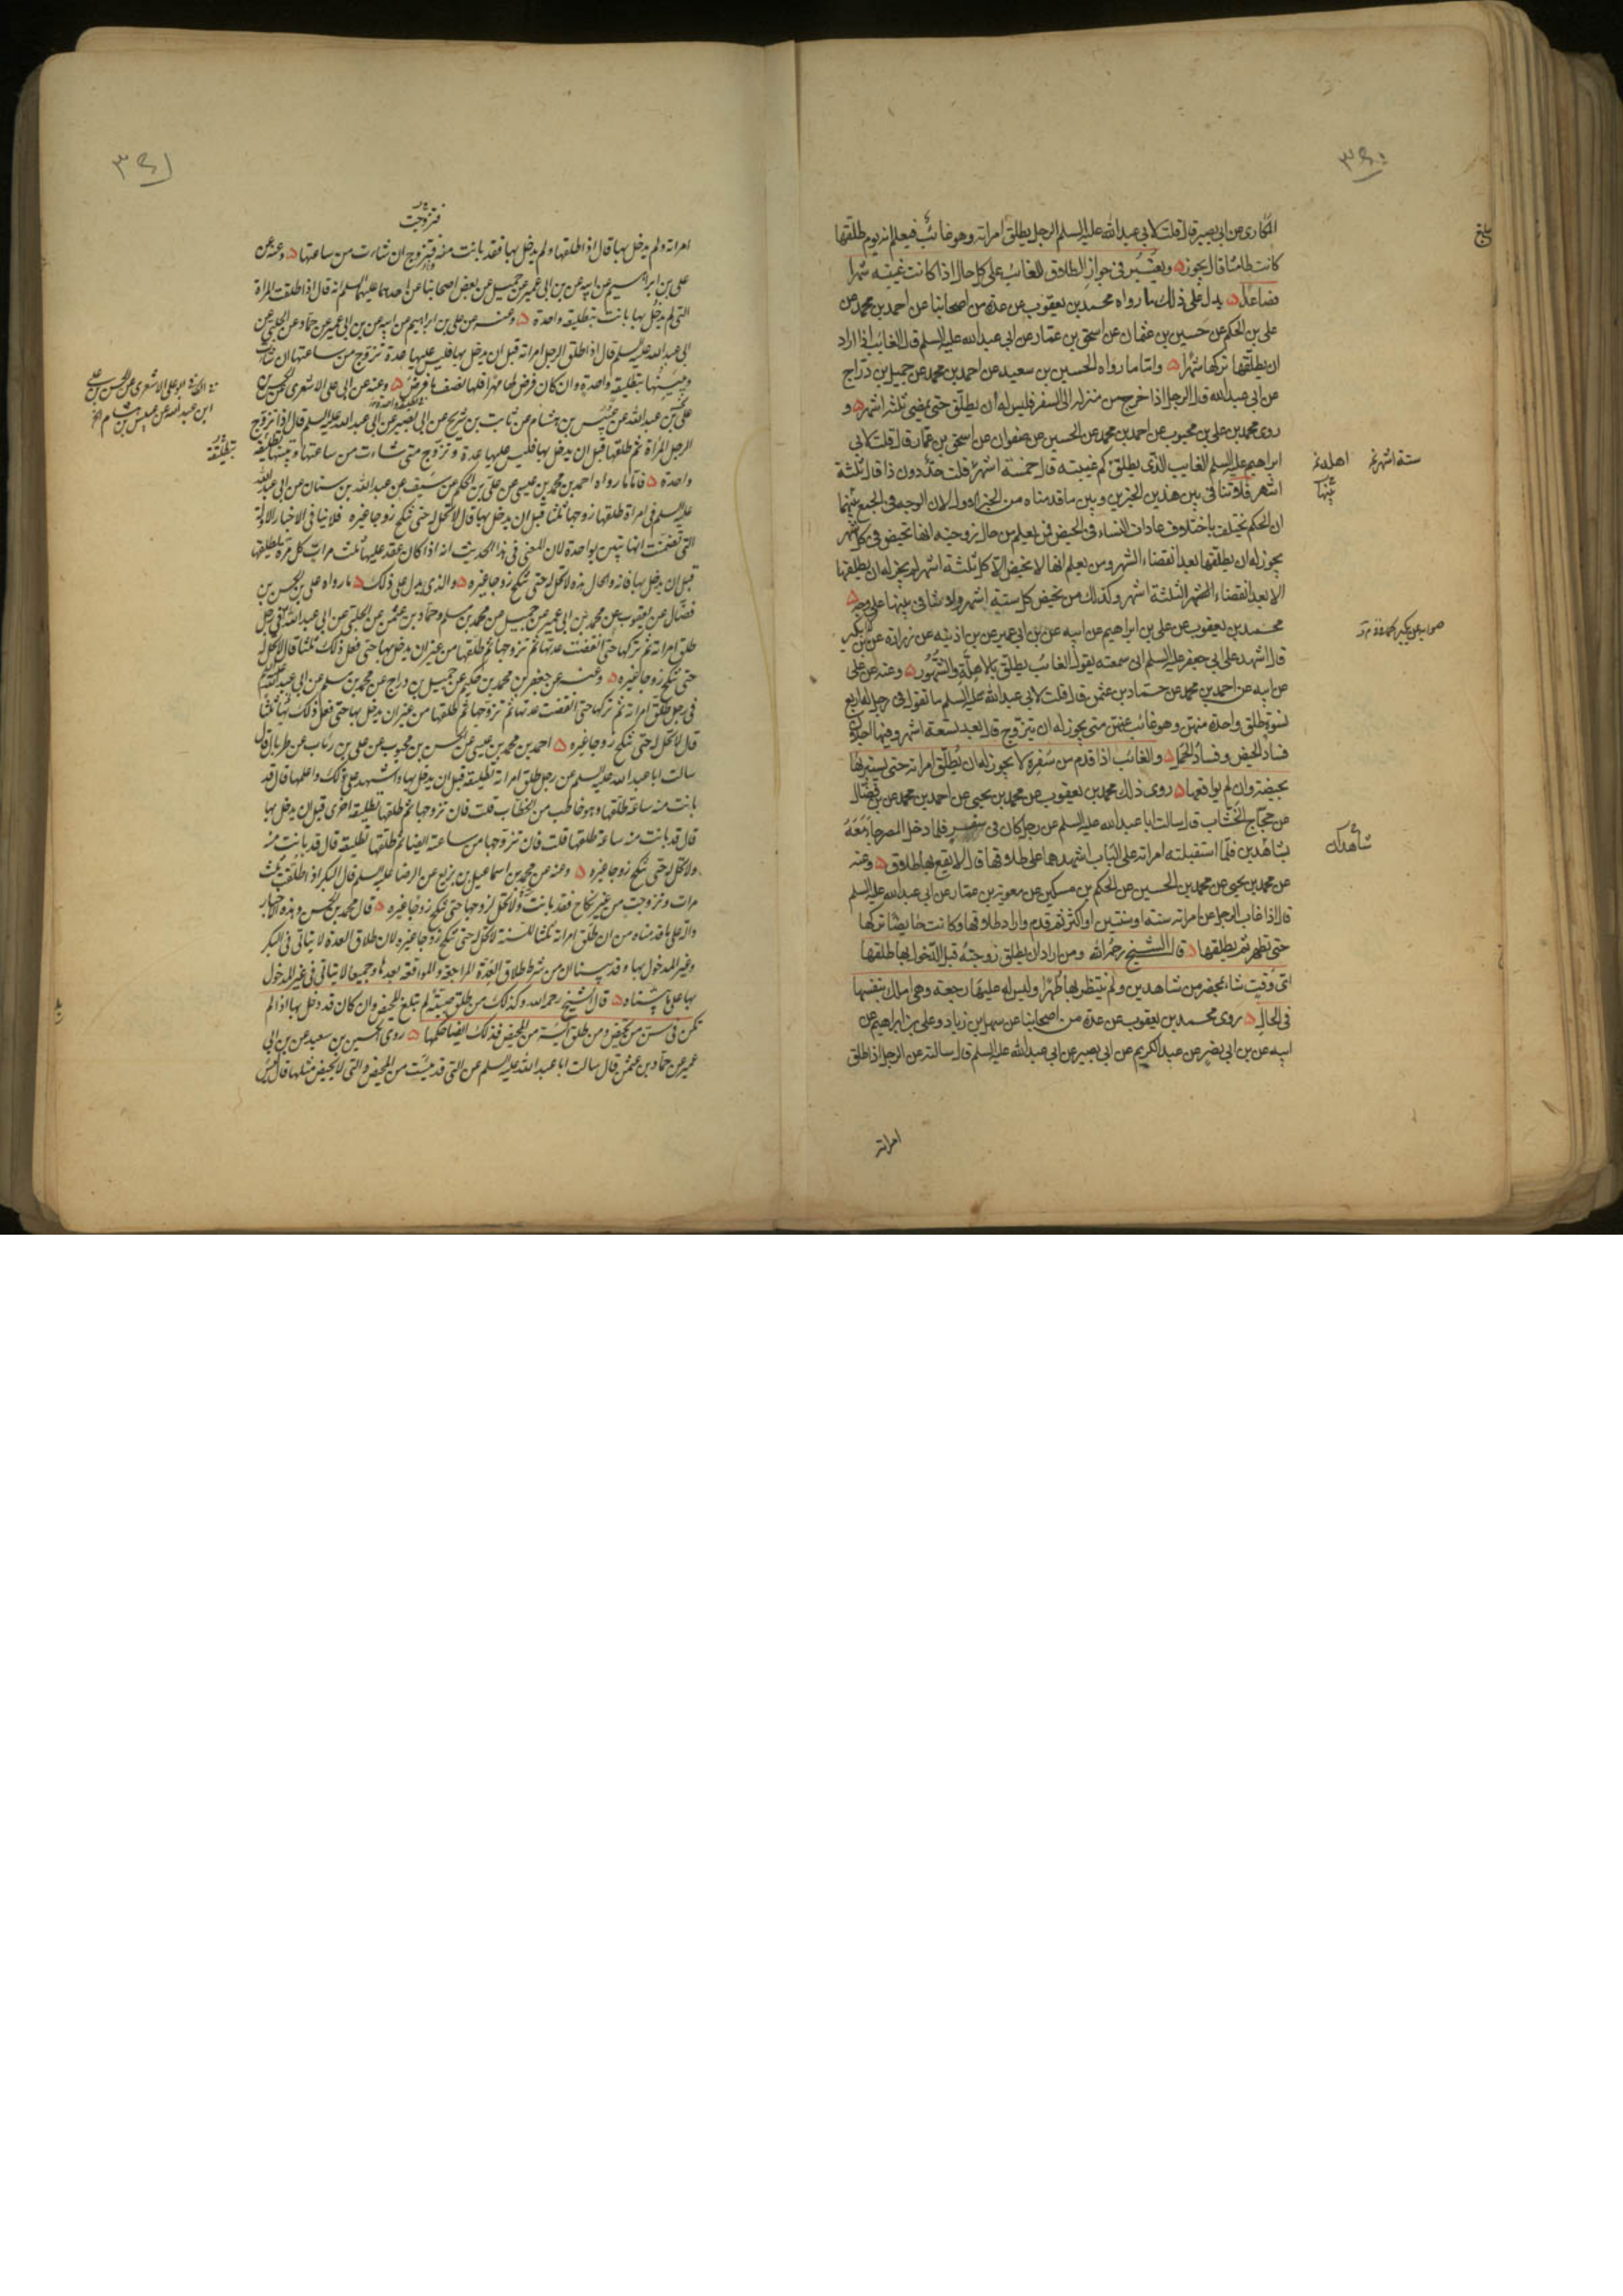 المكارى عن ابى بصير قال قلت لابى عبد الله عليه السلم الرجل يطلق امراته وهو غائب فيعلم انه يوم طلقها
كانت طامثا قال يجوز ويعتبر فى جواز الطلاق للغائب على كل حال اذا كانت غيبته شهرا
فصاعدا يدل على ذلك ما رواه محمد بن يعقوب عن عدة من اصحابنا عن احمد بن محمد عن
على بن الحكم عن حسين بن عثمان عن اسحق بن عمار عن ابى عبد الله عليه السلم قال الغائب اذا اراد
ان يطلقها تركها شهرا واما ما رواه الحسين بن سعيد عن احمد بن محمد عن جميل بن دراج
عن ابى عبد الله قال الرجل اذا خرج من منزله الى السفر فليس له ان يطلق حتى يمضى ثلثة اشهر و
روى محمد بن على بن محبوب عن احمد بن محمد عن الحسين عن صفوان عن اسحق بن عمار قال قلت لابى
ابراهيم عليه السلم الغايب الذى يطلق كم غيبته قال خمسة اشهر قلت حد دون ذا قال ثلثة
اشهر فلا تنافى بين هذين الخبرين وبين ما قدمناه من الخبر الاول لان الوجه فى الجمع بينهما
ان الحكم يختلف باختلاف عادات النساء فى الحيض فمن يعلم من حال زوجته انها تحيض فى كل شهر
يجوز له ان يطلقها بعد انقضاء الشهر ومن يعلم انها لا تحيض الا كل ثلثة اشهر لم يجز له ان يطلقها
الا بعد انقضاء الثلثة اشهر وكذلك من تحيض كل ستة اشهر ولا تنافى بينها على وجه
محمد بن يعقوب عن على بن ابراهيم عن ابيه عن بن ابى عمير عن بن اذينه عن زرارة عن بكير
قال اشهد على ابى جعفر عليه السلم انى سمعته يقول الغائب يطلق بالاهلة والشهور وعنه عن على
عن ابيه عن احمد بن محمد عن حماد بن عثمن قال قلت لابى عبد الله عليه السلم ما تقول فى رجل له اربع
نسوة طلق واحدة منهن وهو غائب عنهن متى يجوز له ان يتزوج قال بعد تسعة اشهر وفيها اجلان
فساد الحيض وفساد الحمل والغائب اذا قدم من سفره لا يجوز له ان يطلق امراته حتى يستبرئها
بحيضة وان لم يواقعها روى ذلك محمد بن يعقوب عن محمد بن يحيى عن احمد بن محمد عن بن فضال
عن حجاج الخشاب قال سالت ابا عبد الله عليه السلم عن رجل كان فى سفر فلما دخل المصر جاء معه
بشاهدين فلما استقبلته امراته على الباب اشهدهما على طلاقها قال لا يقع بها طلاق وعنه
عن محمد بن يحيى عن محمد بن الحسين عن الحكم بن مسكين عن معوية بن عمار عن ابى عبد الله عليه السلم
قال اذا غاب الرجل عن امراته سنة او سنتين او اكثر ثم قدم واراد طلاقها وكانت حايضا تركها
حتى تطهر ثم يطلقها قال الشيخ رحمه الله ومن اراد ان يطلق زوجته قبل الدخول بها طلقها
اى وقت شاء بمحضر من شاهدين ولم ينتظر بها طهرا وليس له عليها رجعة وهى املك بنفسها
فى الحال روى محمد بن يعقوب عن عدة من اصحابنا عن سهل بن زياد وعلى بن ابراهيم عن
ابيه عن بن ابى نصر عن عبد الكريم عن ابى بصير عن ابى عبد الله عليه السلم قال سالته عن الرجل اذا طلق
امراته
بلغ
ستة اشهر
بينها
شاهدك
فتزوجت
امراته ولم يدخل بها قال اذا طلقها ولم يدخل بها فقد بانت منه وتتزوج ان شاءت من ساعتها وعنه عن
على بن ابراهيم عن ابيه عن بن ابى عمير عن جميل عن بعض اصحابنا عن احدهما عليهما السلم انه قال اذا طلقت المراة
التى لم يدخل بها بانت بتطليقة واحدة وعنه عن على بن ابراهيم عن ابيه عن بن ابى عمير عن حماد عن الحلبى عن
ابى عبد الله عليه السلم قال اذا طلق الرجل امراته قبل ان يدخل بها فليس عليها عدة تزوج من ساعتها ان شاءت
وتبينها بتطليقة واحدة وان كان فرض لها مهرا فلها نصف ما فرض وعنه عن ابى على الاشعرى عن الحسن بن
على بن عبد الله عن عبيس بن هشام عن ثابت بن شريح عن ابى بصير عن ابى عبد الله عليه السلم قال اذا تزوج
الرجل المراة ثم طلقها قبل ان يدخل بها فليس عليها عدة وتزوج متى شاءت من ساعتها وتبينها تطليقة
واحدة فاما ما رواه احمد بن محمد بن عيسى عن على بن الحكم عن سيف عن عبد الله بن سنان عن ابى عبد الله
عليه السلم فى امراة طلقها زوجها ثلثا قبل ان يدخل بها قال لا تحل له حتى تنكح زوجا غيره فلا ينافى الاخبار الاولة
التى تضمنت انها تبين بواحدة لان المعنى فى هذا الحديث انه اذا كان عقد عليها ثلث مرات كل مرة يطلقها
قبل ان يدخل بها فانه والحال هذه لا تحل له حتى تنكح زوجا غيره والذى يدل على ذلك ما رواه على بن الحسن بن
فضال عن يعقوب عن محمد بن ابى عمير عن جميل عن محمد بن مسلم وحماد بن عثمن عن الحلبى عن ابى عبد الله فى رجل
طلق امراته ثم تركها حتى انقضت عدتها ثم تزوجها ثم طلقها من غير ان يدخل بها حتى فعل ذلك ثلثا قال لا تحل له
حتى تنكح زوجا غيره وعنه عن جعفر بن محمد بن حكيم عن جميل بن دراج عن محمد بن مسلم عن ابى عبد الله عليه السلم
فى رجل طلق امراته ثم تركها حتى انقضت عدتها ثم تزوجها ثم طلقها من غير ان يدخل بها حتى فعل ذلك بها ثلثا
قال لا تحل له حتى تنكح زوجا غيره احمد بن محمد بن عيسى عن الحسن بن محبوب عن على بن رئاب عن طربال قال
سالت ابا عبد الله عليه السلم عن رجل طلق امراته تطليقة قبل ان يدخل بها واشهد على ذلك واعلمها قال قد
بانت منه ساعة طلقها وهو خاطب من الخطاب قلت فان تزوجها ثم طلقها تطليقة اخرى قبل ان يدخل بها
قال قد بانت منه ساعة طلقها قلت فان تزوجها من ساعته ايضا ثم طلقها تطليقة قال قد بانت منه
ولا تحل له حتى تنكح زوجا غيره وعنه عن محمد بن اسماعيل بن بزيع عن الرضا عليه السلم قال البكر اذا طلقت ثلث
مرات وتزوجت من غير نكاح فقد بانت ولا تحل لزوجها حتى تنكح زوجا غيره قال محمد بن الحسن وهذه الاخبار
دالة على ما قدمناه من ان طلق امراته ثلثا للسنة لا تحل له حتى تنكح زوجا غيره لان طلاق العدة لا يتاتى فى البكر
وغير المدخول بها وقد بينا ان من شرط طلاق العدة المراجعة والمواقعة بعدها وجميعا لا يتاتى فى غير المدخول
بها على ما بيناه قال الشيخ رحمه الله وكذلك من طلق صبية لم تبلغ المحيض وان كان قد دخل بها اذا لم
تكن فى سن من تحيض ومن طلق آيسة من المحيض فذلك ايضا حكمها روى الحسين بن سعيد عن بن ابى
عمير عن حماد بن عثمن قال سالت ابا عبد الله عليه السلم عن التى قد يئست من المحيض والتى لا تحيض مثلها قال ليس
بتطليقة